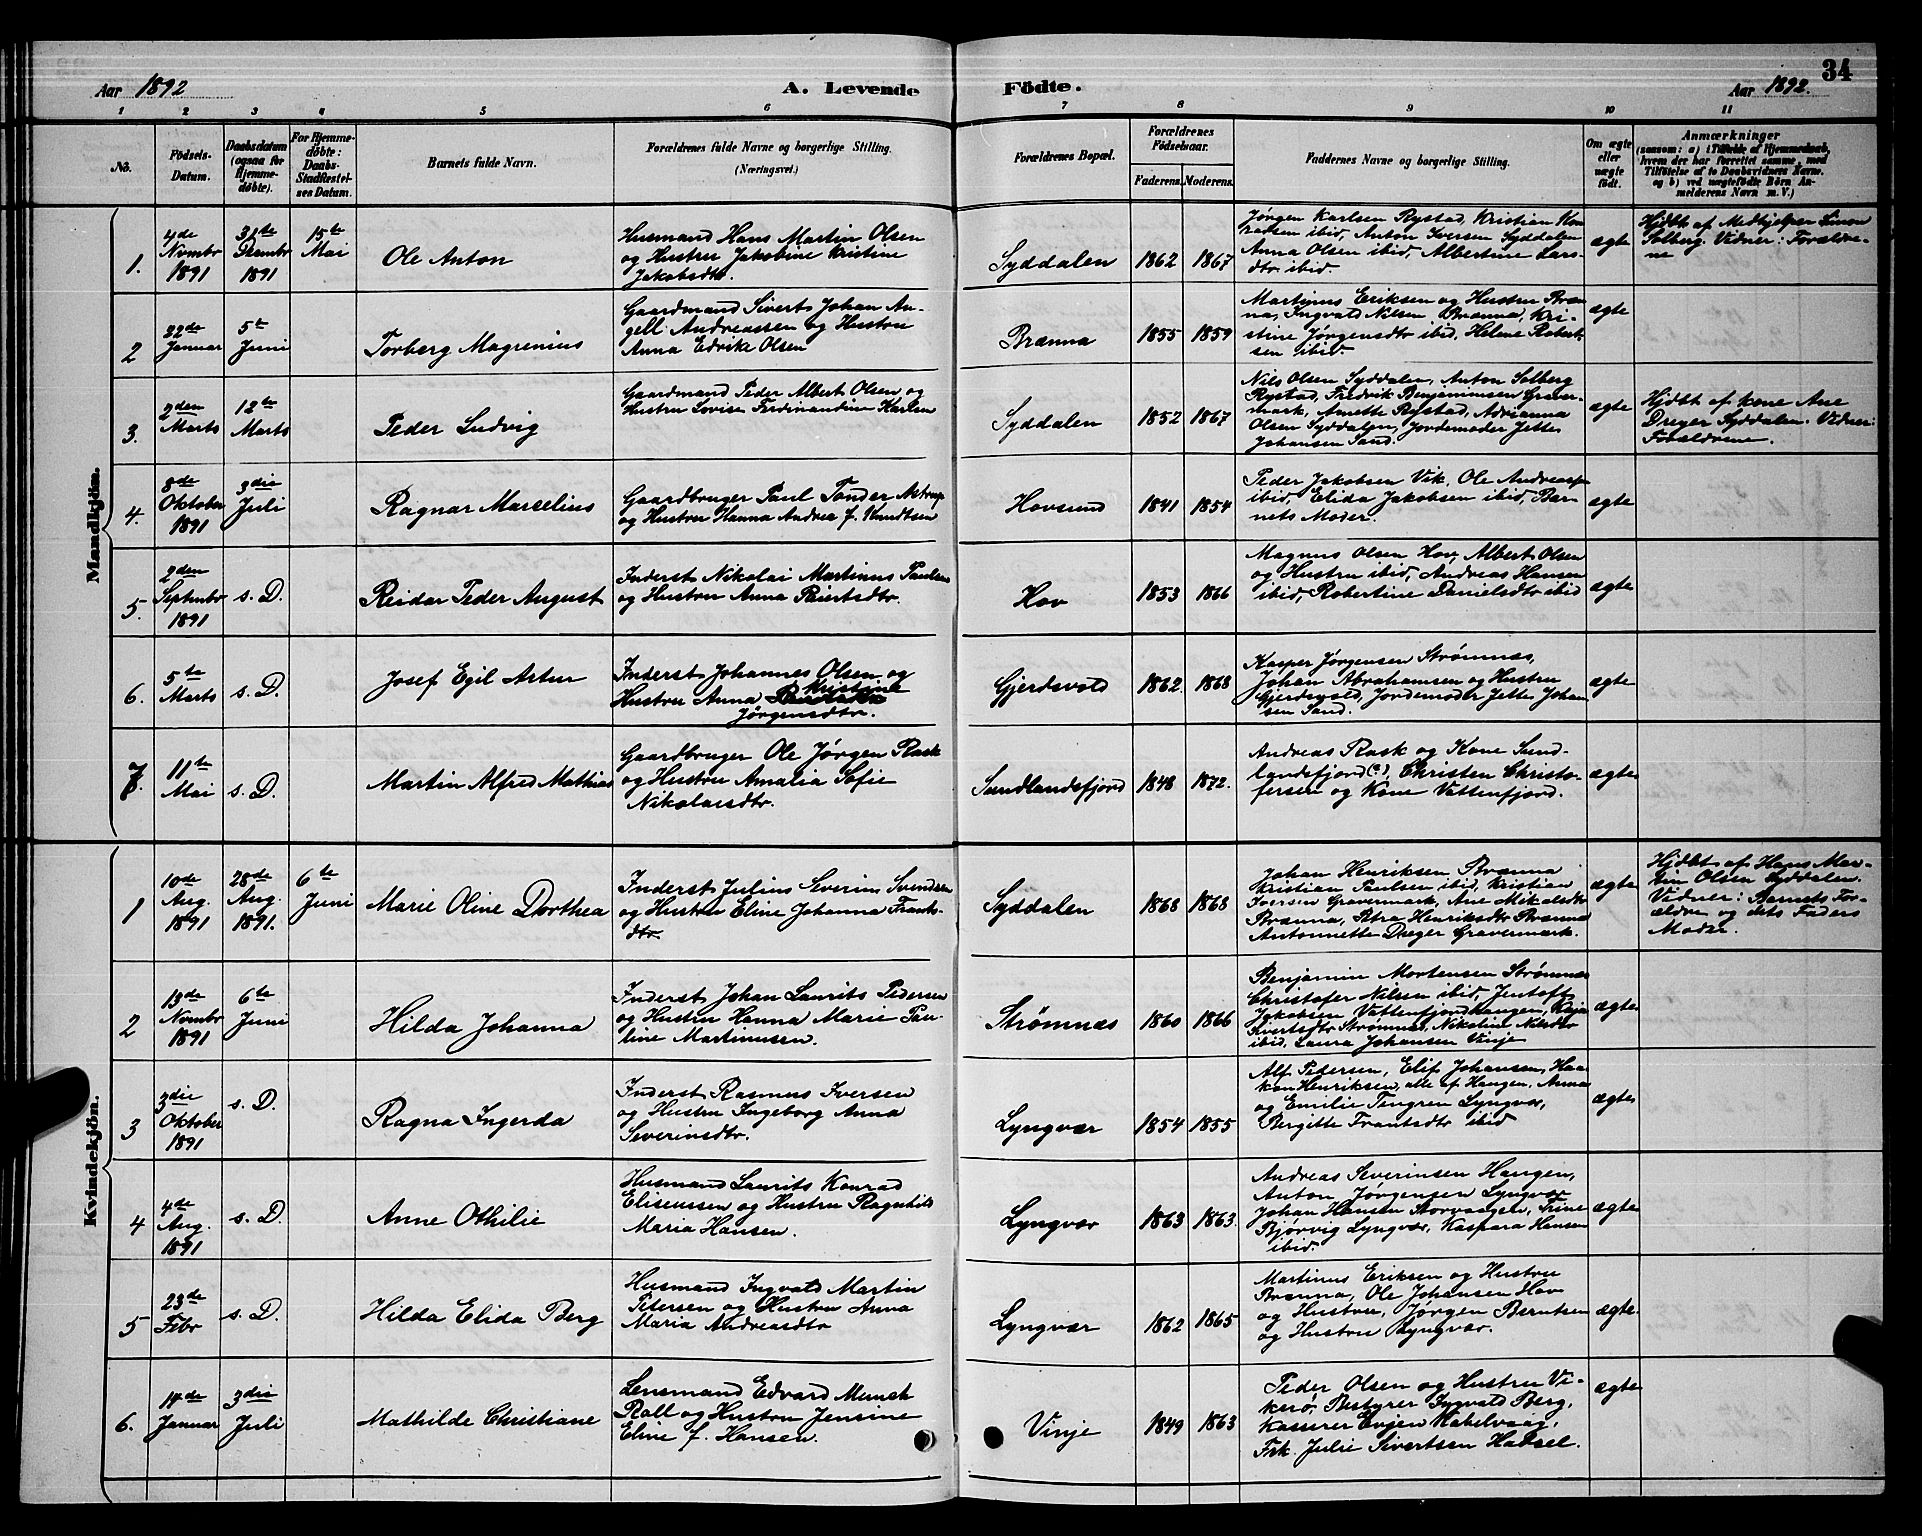 34
Aar 1892
A. Levende
Födte.
Aar 1892.
1 2 3 4 5 6 7 8 9 10 11
No.
Födsels-
Datum.
Daabsdatum
(ogsaa for
Hjemme-
döbte).
For Hjemme-
döbte:
Daabs-
Stadfæstel-
ses Datum.
Barnets fulde Navn.
Forældrenes fulde Navne og borgerlige Stilling.
(Næringsvei.)
Forældrenes Bopæl.
Forældrenes
Födselsaar.
Faderens. Moderens.
Faddernes Navne og borgerlige Stilling.
Om ægte
eller
uægte
födt.
Anmærkninger
(saasom: a) i Tilfælde af Hjemmedaab,
hvem der har forrettet samme, med
Tilföielse af to Daabsvidners Navne,
og b) ved uægtefödte Börn An-
melderens Navn m. V.)
Mandkjön.
1.
4de
Novmbr
1891
31te
Dsembr
1891
15te
Mai
Ole Anton
Husmand Hans Martin Olsen
og Hustru Jakobine Kristine
Jakobsdtr.
Syddalen
1862
1867
Jørgen Karlsen Rystad, Kristian Kon
radsen ibid, Anton Iversen Syddalen
Anna Olsen ibid, Albertine Lars-
dtr ibid.
ægte
Hjdbt af Medhjelper Simon
Solberg. Vidner: Forældre-
ne
2
22de
Januar
5te
Juni
Torberg Magrenius
Gaardmand Sivert Johan An-
gell Andreassen og Hustru
Anna Edvike Olsen
Brænna
1855
1859
Martinus Eriksen og Hustru Bræn-
na, Ingvald Nilsen Brænna, Kri-
stine Jørgensdtr ibid, Helene Robert-
sen ibid.
ægte
3.
2den
Marts
12te
Marts
Peder Ludvig
Gaardmand Peder Albert Olsen og
Hustru Lovise Ferdinandine Karlsen
Syddalen
1852
1867
Nils Olsen Syddalen, Anton Solberg
Rystad, Fredrik Benjaminsen Graver-
mark, Anette Rystad, Adrianna
Olsen Syddalen, Jordemoder Jette
Johansen Sand.
ægte
Hjdbt af kone Ane
Dreyer Syddalen. Vidner:
Forældrene.
4.
8de
Oktober
1891
3die
Juli
Ragnar Marselius
Gaardbruger Paul Tønder Astrup
og Hustru Hanna Andrea f. Knudtsen
Hovsund
1841
1854
Peder Jakobsen Vik, Ole Andreasen
ibid, Elida Jakobsen ibid, Bar-
nets Moder.
ægte
5.
2den
Septembr
1891
s. D.
Reidar Peder August
Inderst Nikolai Martinus Paulsen
og Hustru Anna Berntsdtr.
Hov
1853
1866
Magnus Olsen Hov, Albert Olsen
og Hustru ibid, Andreas Hansen
ibid, Robertine Danielsdtr ibid
ægte
6.
5te
Marts
s. D.
Josef Egil Artur
Inderst Johannes Olsen og
Hustru Anna Kristine
Jørgensdtr.
Gjerdsvold
1862
1868
Kasper Jørgensen Strømnæs,
Johan Abrahamsen og Hustru
Gjerdsvold, Jordemoder Jette Johan
sen Sand.
ægte
7.
11te
Mai
s. D.
Martin Alfred Mathias
Gaardbruger Ole Jørgen Rask
og Hustru Amalia Sofie
Nikolaisdtr.
Sundlandsfjord
1848
1872.
Andreas Rask og Kone Sund-
landsfjord(?), Christen Christo-
fersen og Kone Vattenfjord.
ægte
Kvindekjön.
1
10de
Aug.
1891
28de
Aug.
1891.
6te
Juni
Marie Oline Dorthea
Inderst Julius Severin Svendsen
og Hustru Eline Johanna Frants-
dtr
Syddalen
1868
1868
Johan Henriksen Brænna
Kristian Paulsen ibid, Kristian
Iversen Gravermark, Ane Mikalsdtr
Brænna, Petra Henriksdtr Brænna
Antonnette Dreyer Gravermark.
ægte
Hjdbt af Hans Mar-
tin Olsen Syddalen.
Vidner: Barnets For-
ældre og dets Faders
Moder.
2
13de
Novmbr
1891
6te
Juni
Hilda Johanna
Inderst Johan Laurits Pedersen
og Hustru Hanna Marie Pau-
line Martinusen.
Strømnæs
1860
1866
Benjamin Mortensen Strømnæs
Christofer Nilsen ibid, Jentoft
Jakobsen Vattenfjordhaugen, Kaja
Sivertsdtr Strømnæs, Nikoline Nilsdtr
ibid, Laura Johansen Vinje
ægte
3
3die
Oktober
1891
s. D.
Ragna Ingerda
Inderst Rasmus Iversen
og Hustru Ingeborg Anna
Severinsdtr.
Lyngvær
1854
1855
Alf Petersen, Elif Johansen, Haa-
kon Henriksen, alle af Haugen, Anna
og Emilie Tingren Lyngvær,
Bergitte Frantsdtr ibid
ægte
4
4de
Aug.
1891
s. D.
Anne Othilie
Husmand Laurits Konrad
Eliseussen og Hustru Ragnhild
Maria Hansen.
Lyngvær
1863
1863.
Andreas Severinsen Haugen,
Anton Jørgensen Lyngvær
Johan Hansen Storvaagen, Trine
Bjørvig Lyngvær, Kaspara Hansen
ibid.
ægte
5
23de
Febr
s. D.
Hilda Elida Berg
Husmand Ingvald Martin
Petersen og Hustru Anna
Maria Andreasdtr
Lyngvær
1862
1865
Martinus Eriksen og Hustru
Brænna, Ole Johansen Hov
og Hustru, Jørgen Berntsen
og Hustru Lyngvær.
ægte
6.
14de
Januar
3die
Juli
Mathilde Christiane
Lensmand Edvard Munch
Rall og Hustru Jensine
Eline f. Hansen.
Vinje
1849
1863
Peder Olsen og Hustru Vi-
kerö, Bestyrer Ingvald Berg,
Kasserer Evjen Kabelvaag,
Frk. Julie Sivertsen Hadsel.
ægte